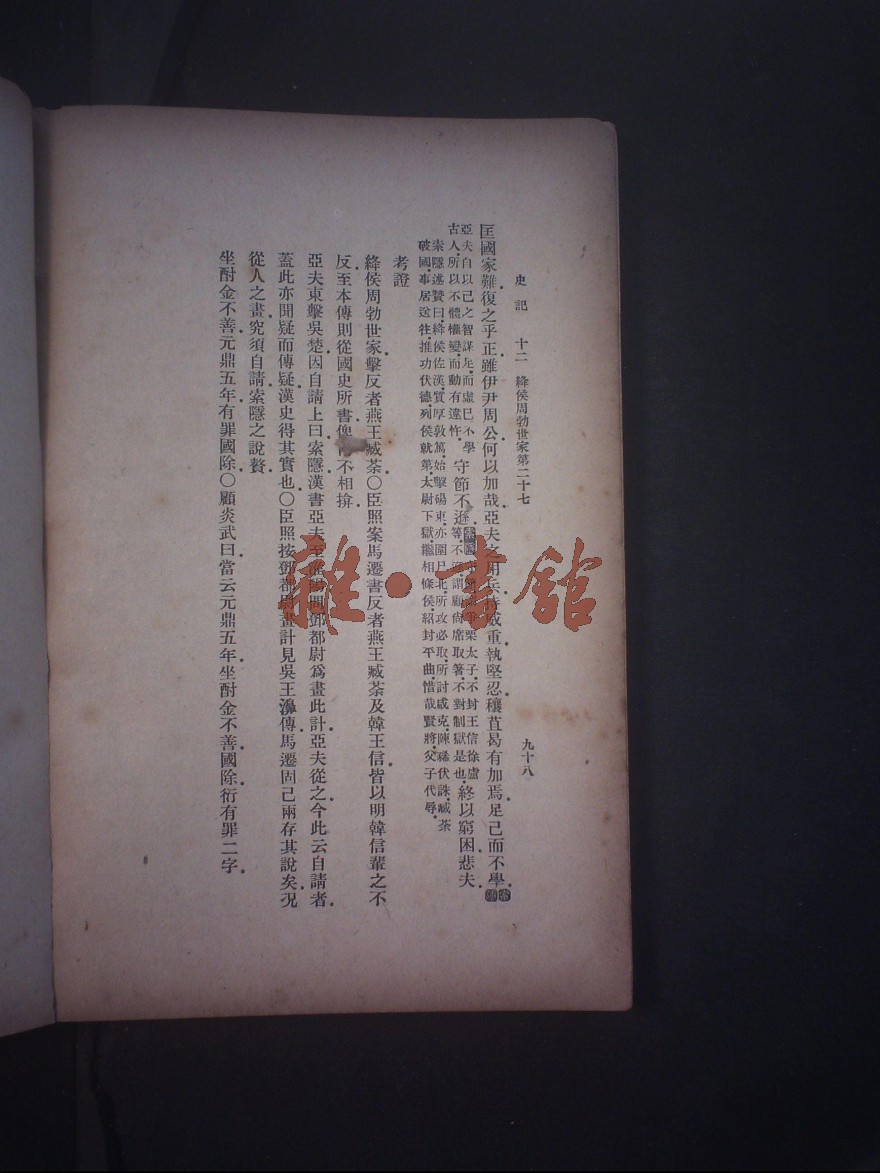 史記 十二 絳侯周勃世家第二十七 九十八
匡國家難復之乎正雖伊尹周公何以加哉亞夫之用兵持威重執堅忍穰苴曷有加焉足己而不學索隱
亞夫自以己之智謀足而虛已不學
古人所以不體權變而動有違忤
守節不遜
等不遜謂顧尙席取箸不對制獄是也
終以窮困悲夫
索隱述贊曰絳侯佐漢質厚敦篤始擊碭東亦圍尸北所攻必取所討咸克陳豨伏誅臧荼
破國事居送往推功伏德列侯就第太尉下獄繼相條侯紹封平曲惜哉賢將父子代辱
考證
絳侯周勃世家擊反者燕王臧荼〇臣照案馬遷書反者燕王臧荼及韓王信皆以明韓信輩之不
反至本傳則從國史所書不相揜
亞夫東擊吳楚因自請上曰索隱漢書亞夫至問鄧都尉爲畫此計亞夫從之今此云自請者
蓋此亦聞疑而傳疑漢史得其實也〇臣照按鄧都尉畫計見吳王濞傳馬遷固已兩存其說矣況
從人之畫究須自請索隱之說贅
坐酎金不善元鼎五年有罪國除〇顧炎武曰當云元鼎五年坐酎金不善國除衍有罪二字
雜·書館